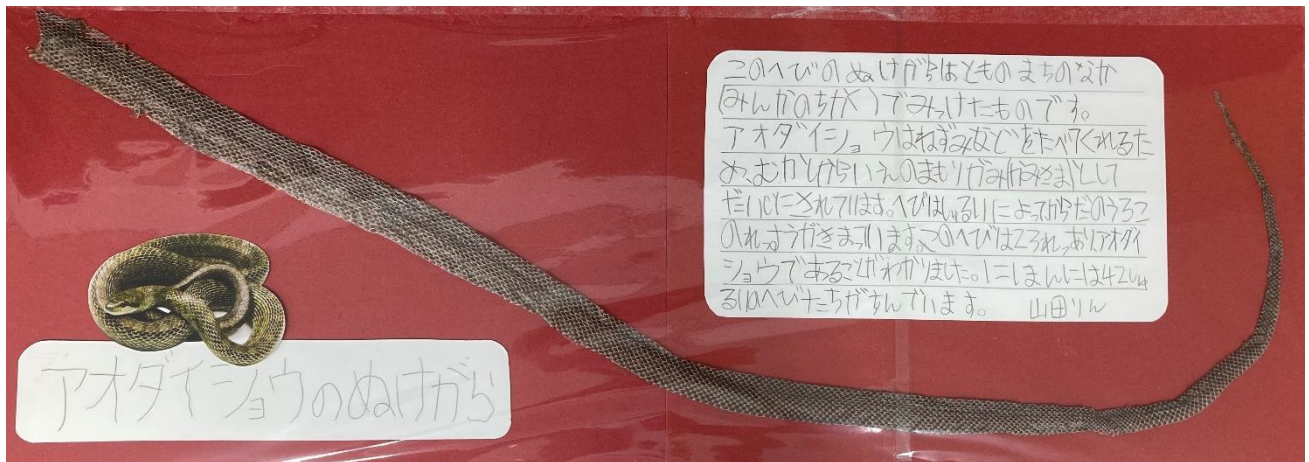 このへびのぬけがらはとものまちのなか
(みんかのちかく)でみつけたものです。
アオダイショウはねずみなどをたべてくれるた
め、むかしからいえのまもりがみ(かみさま)として
だいじにされています。へびはしゅるいによってからだのうろこ
のれつすうがきまっています。このへびは23れつありアオダイ
ショウであることがわかりました。にほんには42しゅ
るいのへびたちがすんでいます。 山田りん
アオダイショウのぬけがら